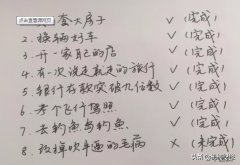 点击查看源网页
套大房子 ✓ (完成)
2.换辆好车 ✓ (完成)
3.开一家自己的店 ✓ (完成)
4.有一次说走就走的旅行 ✓ (完成)
5.银行存款突破九位数 ✓ (完成)
6.考个飞行驾照 ✓ (完成)
7.去钓鱼岛钓鱼 ✓ (完成)
8.改掉吹牛逼的毛病 ✗ (未完成)